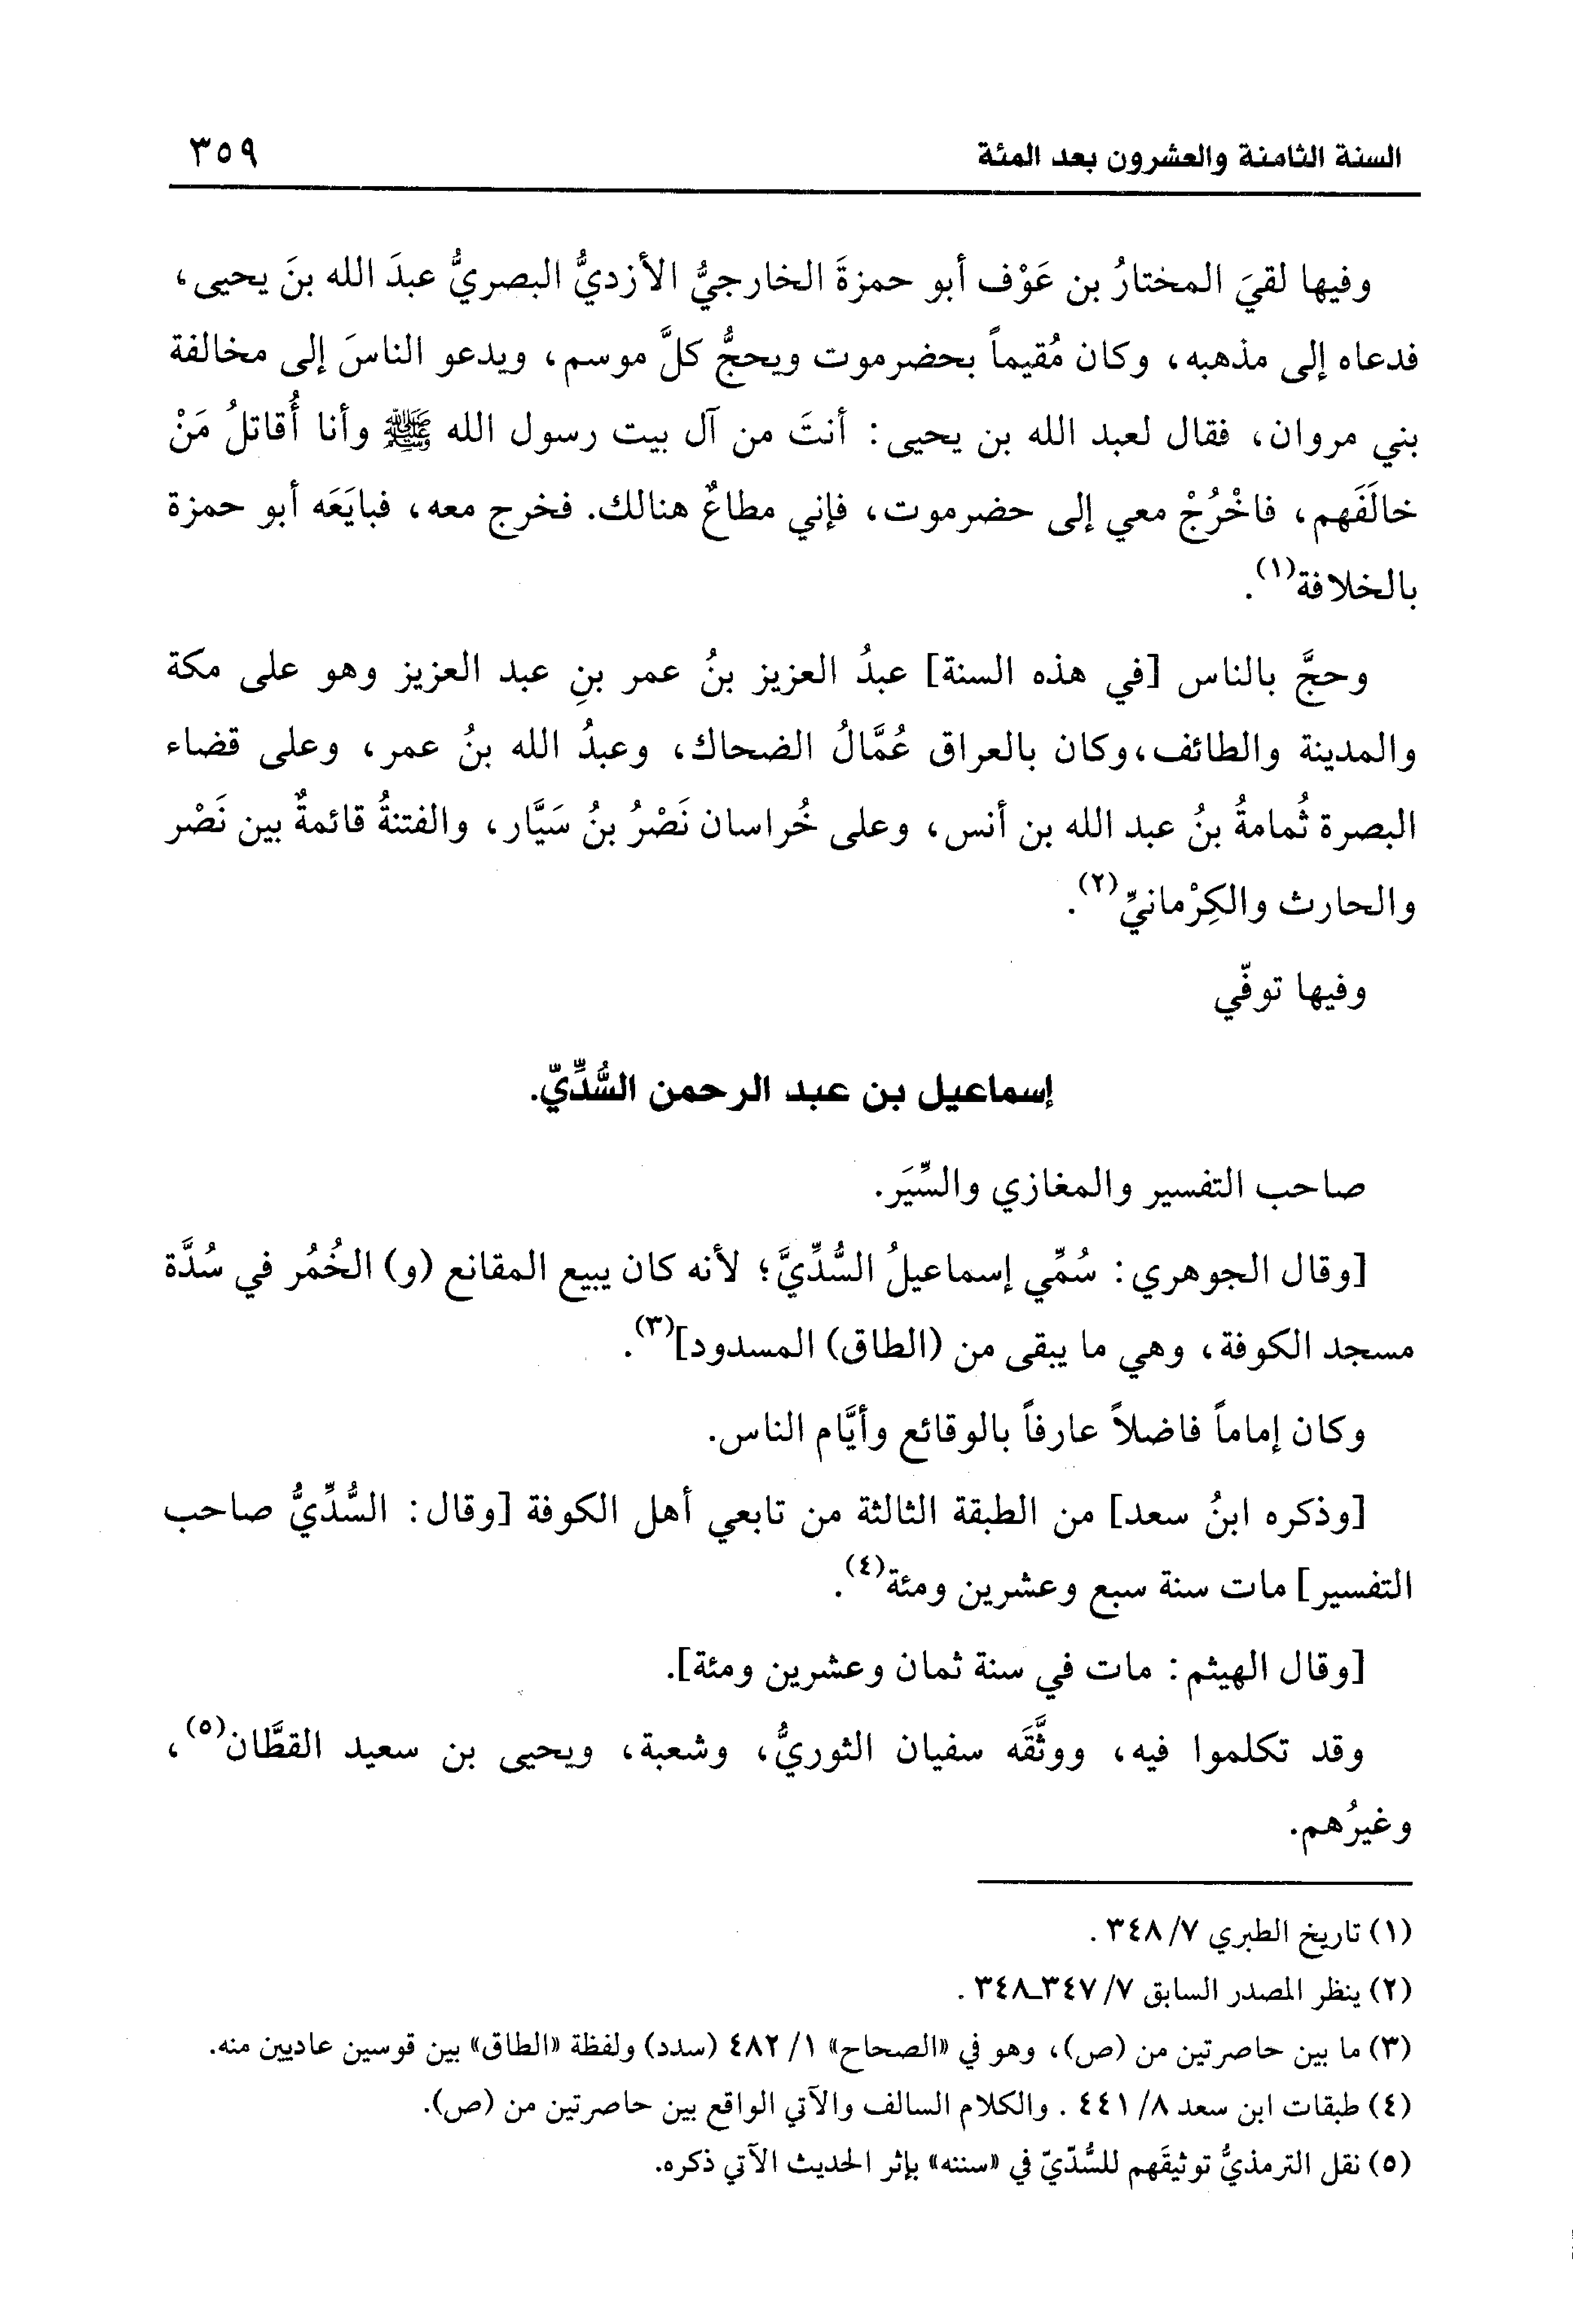 السنة الثامنة والعشرون بعد المئة ٣٥٩
وفيها لقيَ المختارُ بن عَوْف أبو حمزةَ الخارجيُّ الأزديُّ البصريُّ عبدَ الله بنَ يحيى،
فدعاه إلى مذهبه، وكان مُقيماً بحضرموت ويحجُّ كلَّ موسم، ويدعو الناسَ إلى مخالفة
بني مروان، فقال لعبد الله بن يحيى: أنتَ من آل بيت رسول الله ﷺ وأنا أُقاتلُ مَنْ
خالَفَهم، فاخْرُجْ معي إلى حضرموت، فإني مطاعٌ هنالك. فخرج معه، فبايَعَه أبو حمزة
بالخلافة(١).
وحجَّ بالناس [في هذه السنة] عبدُ العزيز بنُ عمر بنِ عبد العزيز وهو على مكة
والمدينة والطائف،وكان بالعراق عُمَّالُ الضحاك، وعبدُ الله بنُ عمر، وعلى قضاء
البصرة ثُمامةُ بنُ عبد الله بن أنس، وعلى خُراسان نَصْرُ بنُ سَيَّار، والفتنةُ قائمةٌ بين نَصْر
والحارث والكِرْمانيِّ(٢).
وفيها توفّي
إسماعيل بن عبد الرحمن السُّدِّيّ.
صاحب التفسير والمغازي والسِّيَر.
[وقال الجوهري: سُمِّي إسماعيلُ السُّدِّيَّ؛ لأنه كان يبيع المقانع (و) الخُمُر في سُدَّة
مسجد الكوفة، وهي ما يبقى من (الطاق) المسدود](٣).
وكان إماماً فاضلاً عارفاً بالوقائع وأيَّام الناس.
[وذكره ابنُ سعد] من الطبقة الثالثة من تابعي أهل الكوفة [وقال: السُّدِّيُّ صاحب
التفسير] مات سنة سبع وعشرين ومئة(٤).
[وقال الهيثم: مات في سنة ثمان وعشرين ومئة].
وقد تكلموا فيه، ووثَّقَه سفيان الثوريُّ، وشعبة، ويحيى بن سعيد القطَّان(٥)،
وغيرُهم.
(١) تاريخ الطبري ٧/ ٣٤٨ .
(٢) ينظر المصدر السابق ٧/ ٣٤٧ـ٣٤٨ .
(٣) ما بين حاصرتين من (ص)، وهو في «الصحاح» ١/ ٤٨٢ (سدد) ولفظة «الطاق» بين قوسين عاديين منه.
(٤) طبقات ابن سعد ٨/ ٤٤١ . والكلام السالف والآتي الواقع بين حاصرتين من (ص).
(٥) نقل الترمذيُّ توثيقَهم للسُّدّيّ في «سننه» بإثر الحديث الآتي ذكره.